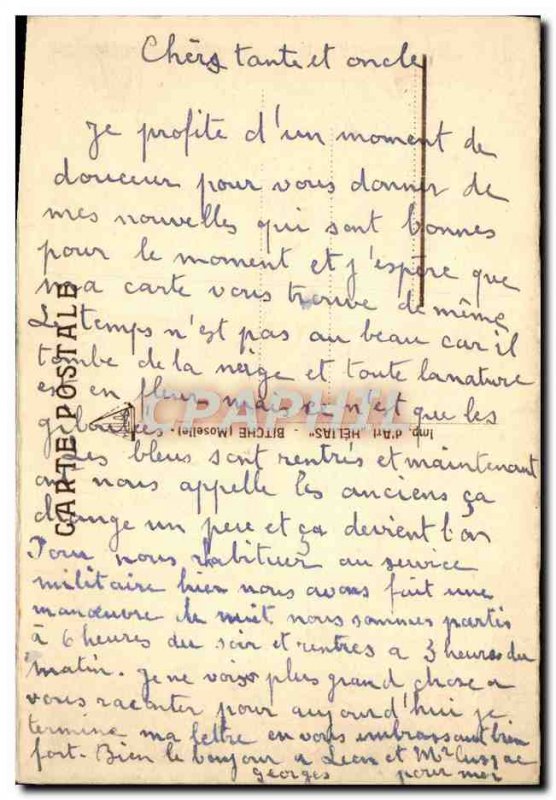 Chèrs tante et oncle
Je profite d'un moment de
douceur pour vous donner de
mes nouvelles qui sont bonnes
pour le moment et j'espère que
ma carte vous trouve de même
Le temps n'est pas au beau car il
tombe de la neige et toute la nature
est en fleur mais ce n'est que les
giboulées
Les bleus sont rentrés et maintenant
on nous appelle les anciens ça
change un peu et ça devient bon
Pour nous habituer au service
militaire hier nous avons fait une
manœuvre de nuit nous sommes partis
à 6 heures du soir et rentrés a 3 heures du
matin. Je ne vois plus grand chose a
vous raconter pour aujourd'hui je
termine ma lettre en vous embrassant bien
fort. Bien le bonjour a Leon et Mr
pour moi
Georges
CARTE POSTALE
Imp. d'Art "HÉLIAS" BITCHE (Moselle).
CPAPHIL